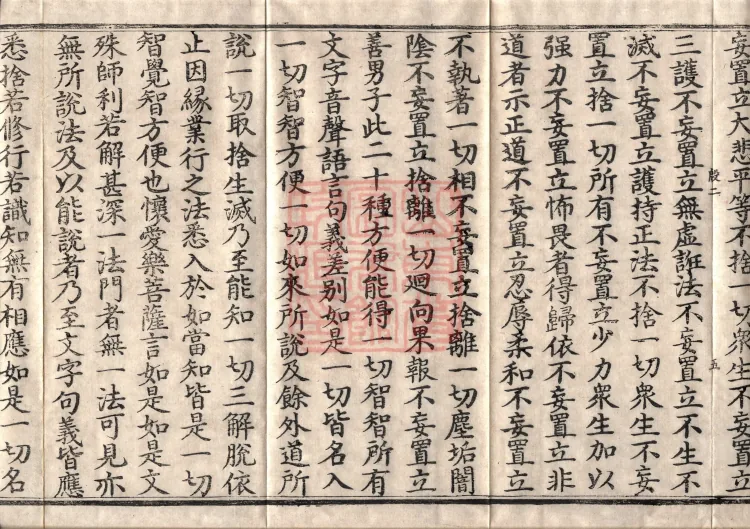 妄置立大悲平等不捨一切衆生不妄置
三護不妄置立無虛誑法不妄置立不生不
滅不妄置立護持正法不捨一切衆生不妄
置立捨一切所有不妄置立少力衆生加以
强力不妄置立怖畏者得歸依不妄置立非
道者示正道不妄置立忍辱柔和不妄置立
不執著一切相不妄置立捨離一切塵垢闇
陰不妄置立捨離一切迴向果報不妄置立
善男子此二十種方便能得一切智智所有
文字音聲語言句義差別如是一切皆名入
一切智智方便一切如來所說及餘外道所
說一切取捨生滅乃至能知一切三解脫依
止因緣業行之法悉入於如當知皆是一切
智覺智方便也懷愛樂菩薩言如是如是文
殊師利若解甚深一法門者無一法可見亦
無所說法及以能說者乃至文字句義皆應
悉捨若修行若識知無有相應如是一切名
殷二
五